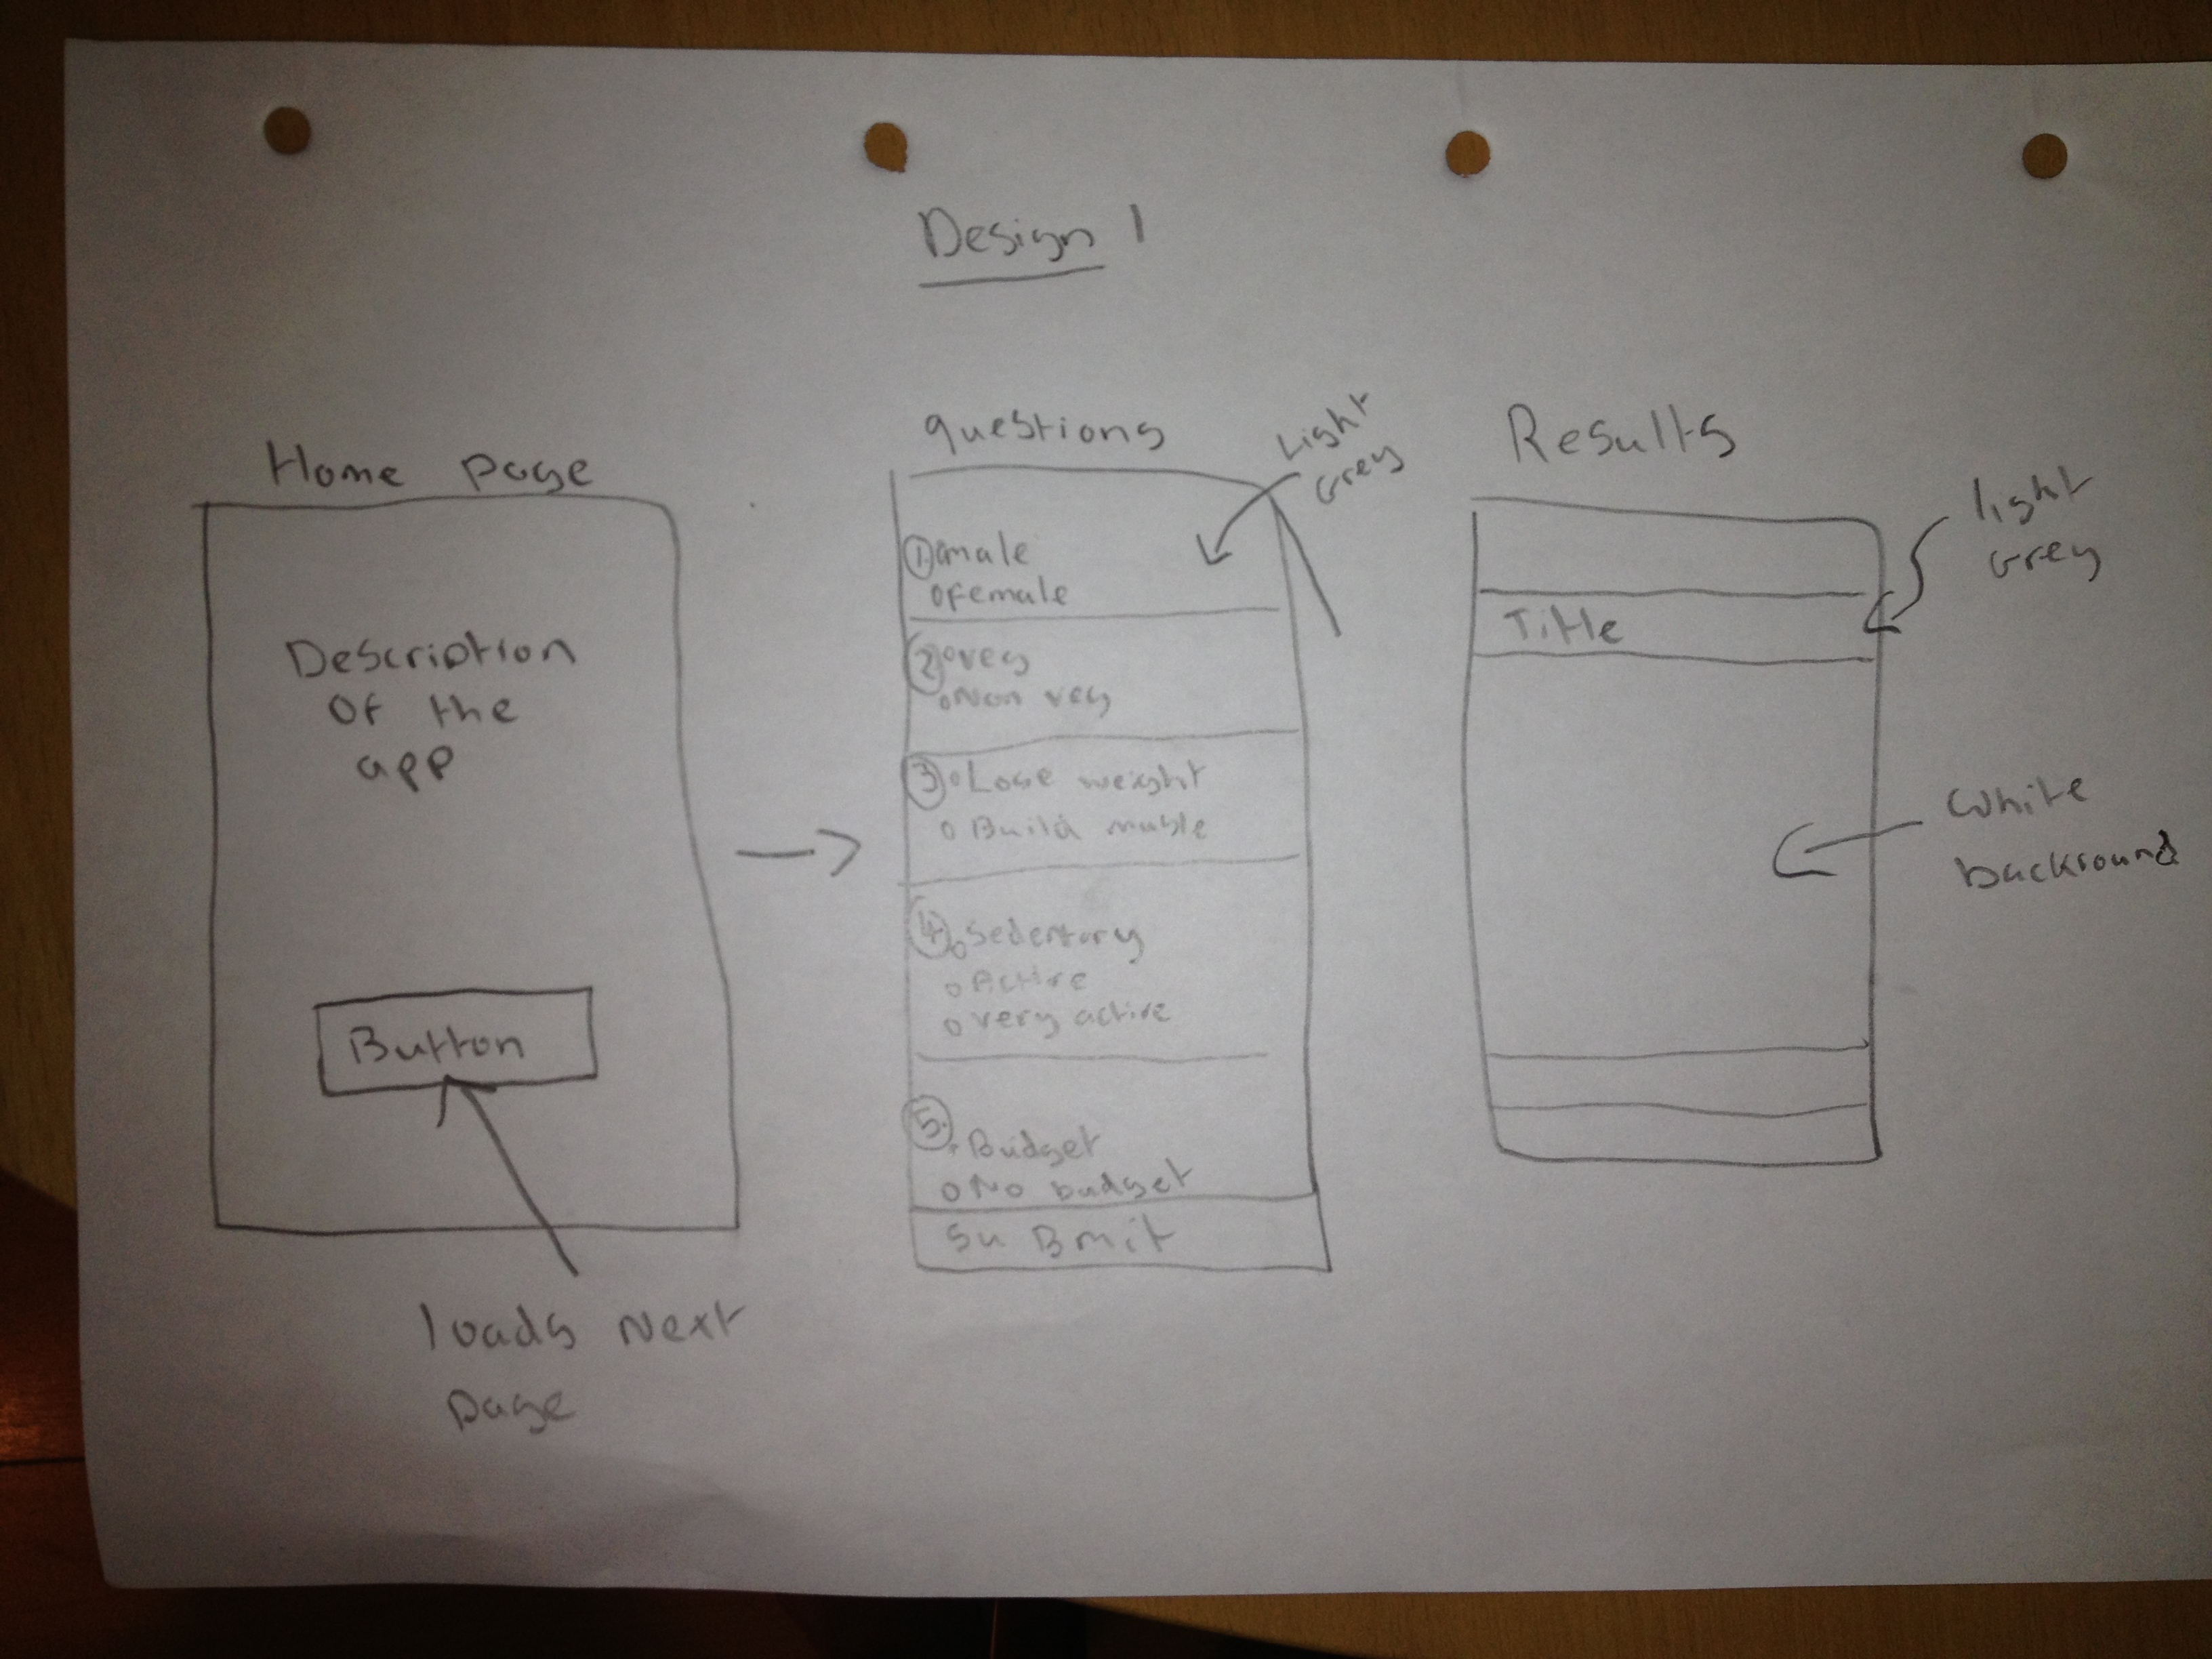 Design 1
Home page
Description
of the
app
Button
loads next
page
questions
Light
Grey
① male
o female
② o veg
o Non veg
③ o Lose weight
o Build musle
④ o Sedentary
o Active
o very active
⑤ Budget
o No budget
SuBmit
Results
Title
light
Grey
white
backround